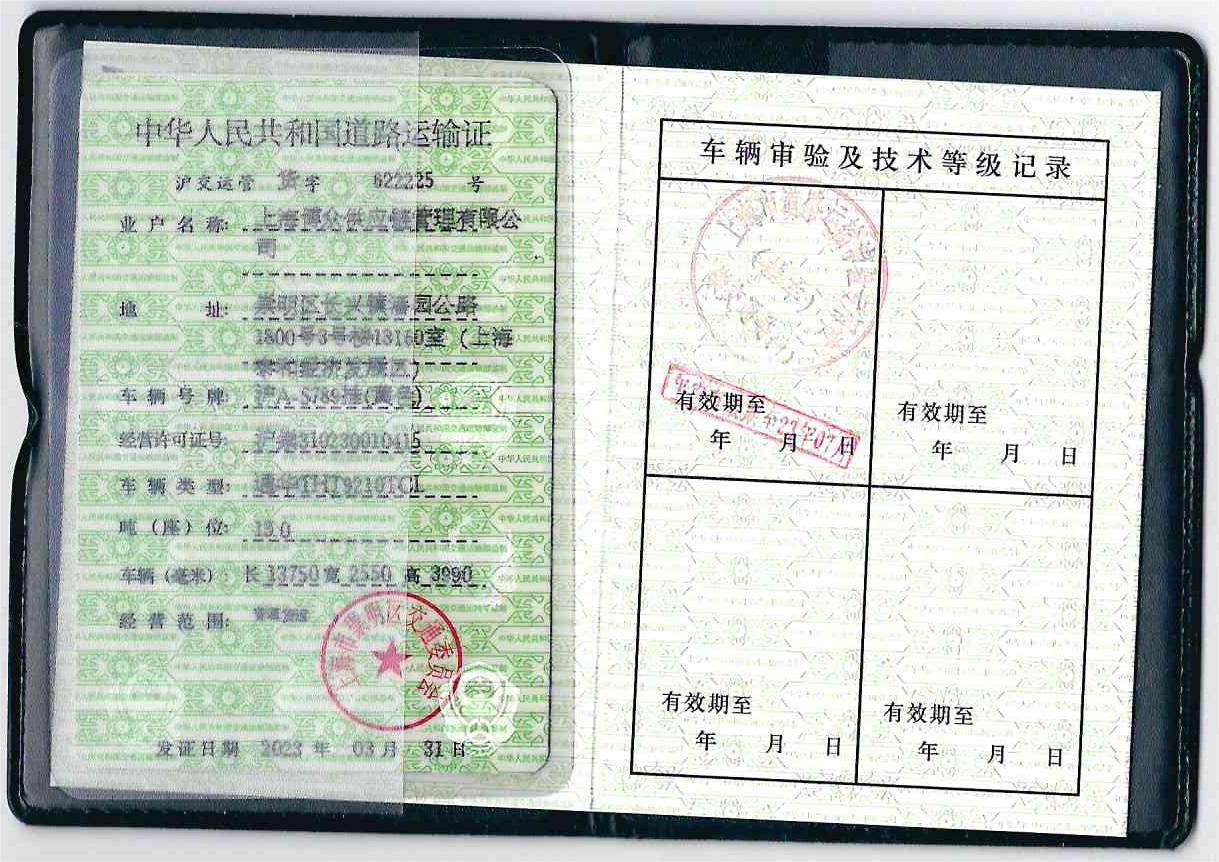 中华人民共和国道路运输证
沪交运管 货字 622225 号
业户名称: 上海博众供应链管理有限公
司
地 址: 崇明区长兴镇潘园公路
1800号3号楼13160室(上海
泰和经济发展区)
车辆号牌: 沪A 挂(黄色)
经营许可证号: 310230010415
车辆类型: 通华THT9210TCL
吨(座)位: 15.0
车辆(毫米): 长 13750 宽 2550 高 3990
经营范围:
上海市崇明区交通委员会
发证日期 2023 年 03 月 31 日
车辆审验及技术等级记录
有效期至
年 月 日
有效期至
年 月 日
有效期至
年 月 日
有效期至
年 月 日